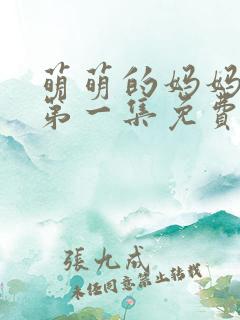 萌萌的妈妈
第一集免費
張九成
未经同意禁止转载